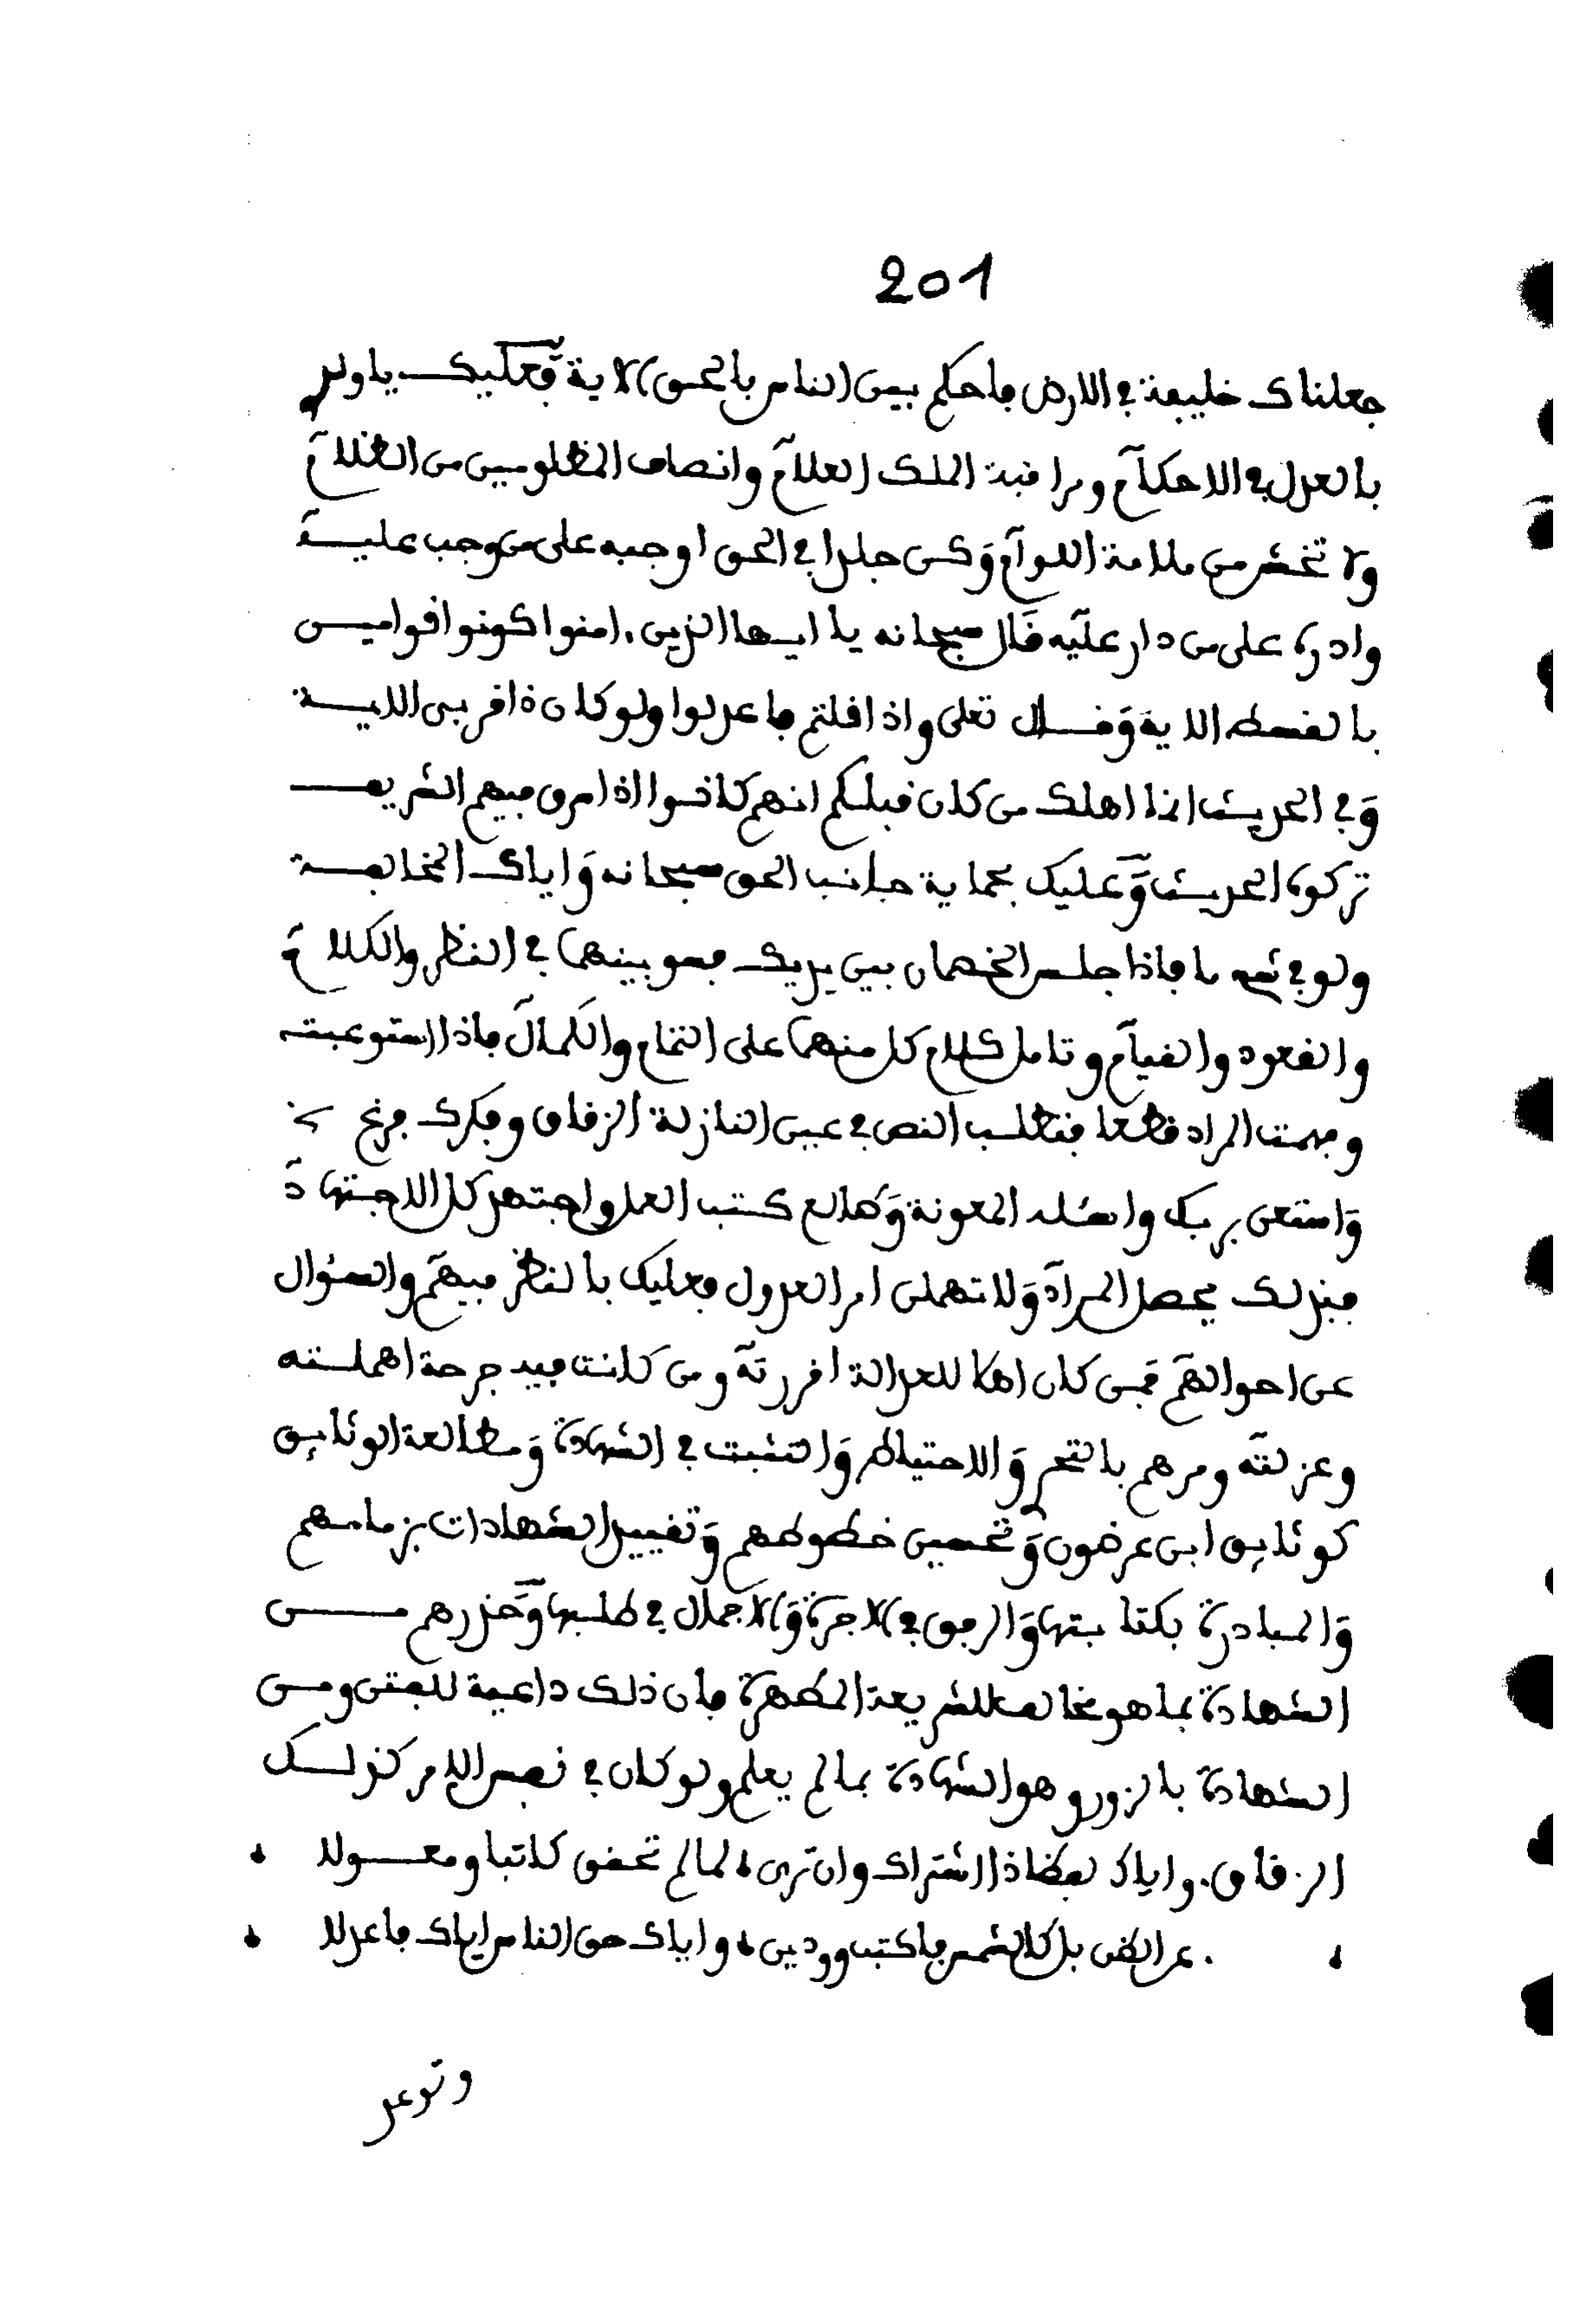 201
جعلناك خليفة في الارض فاحكم بين الناس بالحق الاية فعليك يا ولدي
بالعدل في الاحكام ومراقبة الملك العلام وانصاف المظلومين من الظلام
ولا تخش من ملامة اللوام وكن جلدا في الحق اوجبه على من وجب عليه
وادره على من دار عليه قال سبحانه يا ايها الذين ءامنوا كونوا قوامين
بالقسط الاية وقال تعلى واذا قلتم فاعدلوا ولو كان ذا قربى الاية
وفي الحديث انما اهلك من كان قبلكم انهم كانوا اذا سرق فيهم الشريف
تركوه الحديث وعليك بحماية جانب الحق سبحانه واياك المخالفة
ولو في شيء ما فاذا جلس الخصمان بين يديك فسو بينهما في النظر والكلام
والقعود والقيام وتامل كلام كل منهما على التمام والكمال فاذا استوعبته
وفهمت المراد قطعا فتطلب النص في عين النازلة الزقاق وفكرك فرغ
واستعن بربك واسئله المعونة وطالع كتب العلم واجتهد كل الاجتهاد
فبذلك يحصل المراد ولا تهملن امر العدول فعليك بالنظر فيهم والسؤال
عن احوالهم فمن كان اهلا للعدالة اقررته ومن كانت فيه جرحة اهملته
وعزلته ومرهم بالتحر والاحتياط والتثبت في الشهادة ومطالعة الوثايق
كوثايق ابن عرضون وتحسين خطوطهم وتقييد الشهادات بزمامهم
والمبادرة بكتابتها والرفق في الاجرة والاجمال في طلبها وحذرهم من
الشهادة بما هو مخالف للشريعة المطهرة فان ذلك داعية للفتن ومن
الشهادة بالزور وهو الشهادة بما لم يعلم ولو كان في نفس الامر كذلك
الزقاق. واياك لفظا ذا اشتراك وان ترى لما لم تحقق كاتبا ومعولا
. عن الظن بل كالشمس فاكتب وودين واياك حق الناس اياك فاعدلا
وتوعد